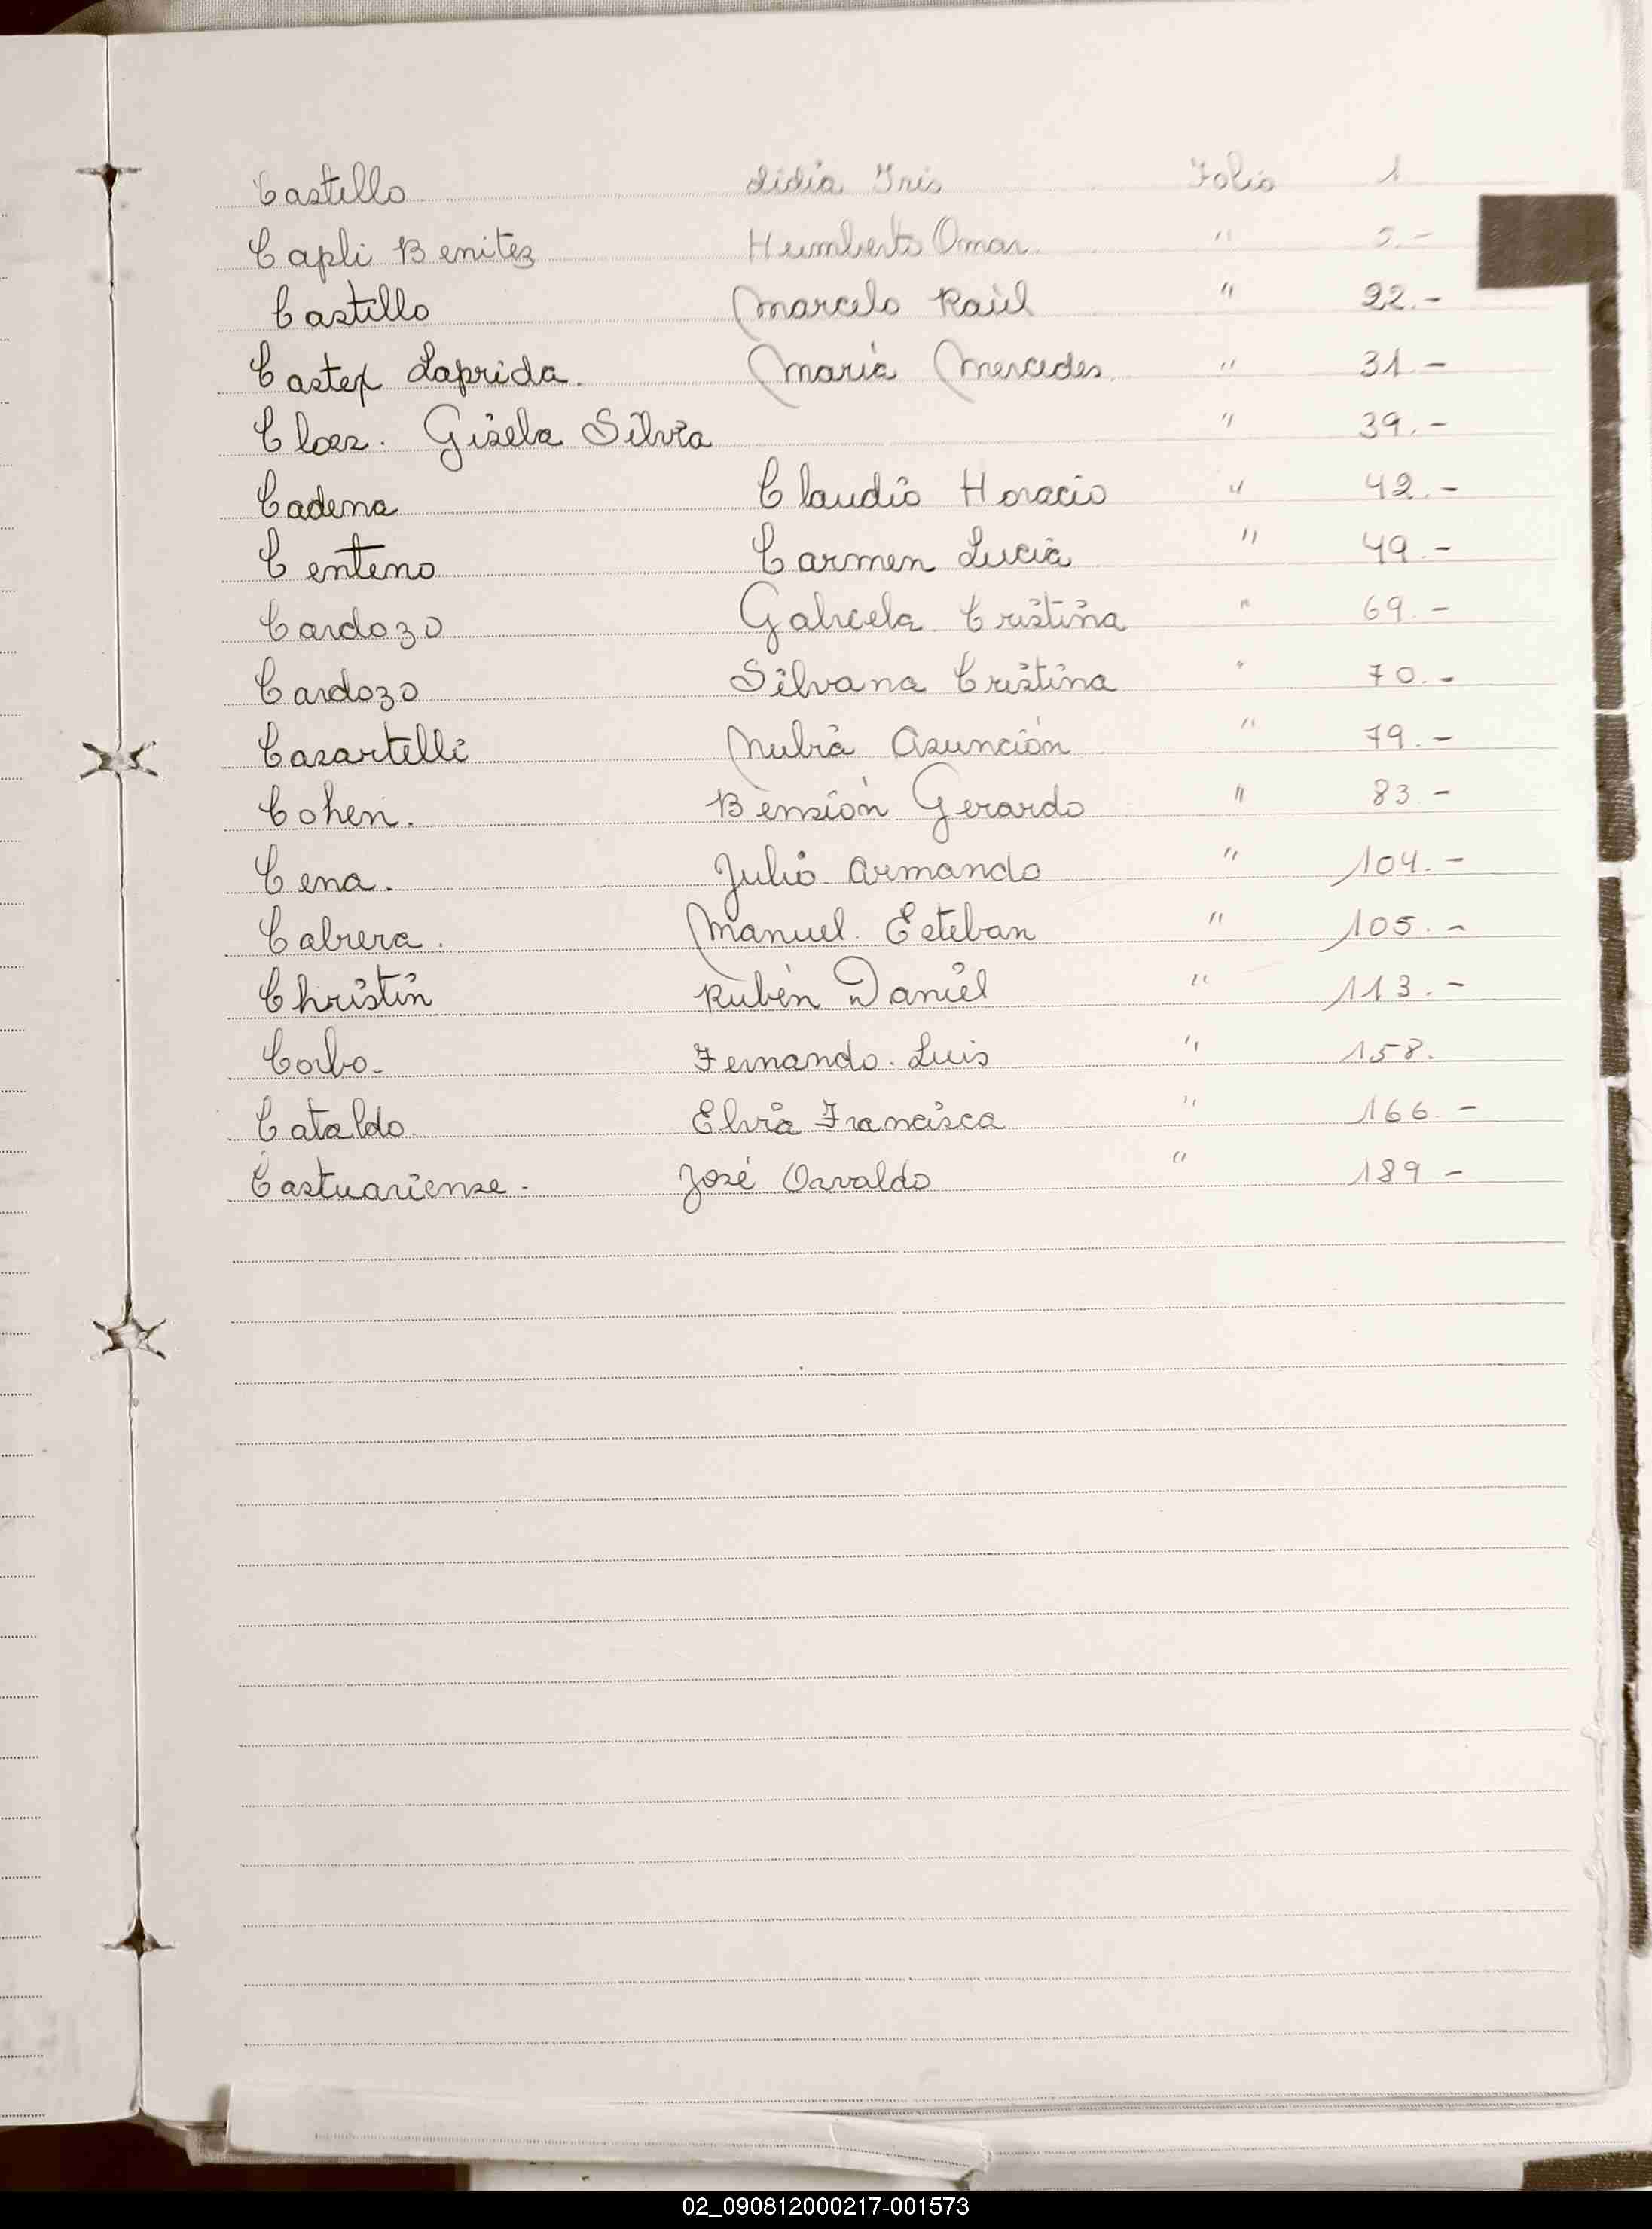 Castillo Lidia Iris Folio 1
Capli Benitez Humberto Omar " 5.-
Castillo Marcelo Raúl " 22.-
Castex Laprida. María Mercedes. " 31.-
Cloez. Gisela Silvia " 39.-
Cadena Claudio Horacio " 42.-
Centeno Carmen Lucía " 49.-
Cardozo Gabriela Cristina " 69.-
Cardozo Silvana Cristina " 70.-
Casartelli Nubia Asunción " 79.-
Cohen. Bensión Gerardo " 83.-
Cena. Julio Armando " 104.-
Cabrera. Manuel. Esteban " 105.-
Christin Rubén Daniel " 113.-
Corbo. Fernando. Luis " 158.
Cataldo. Elvia Francisca " 166.-
Castuariense. José Osvaldo " 189-
02_090812000217-001573